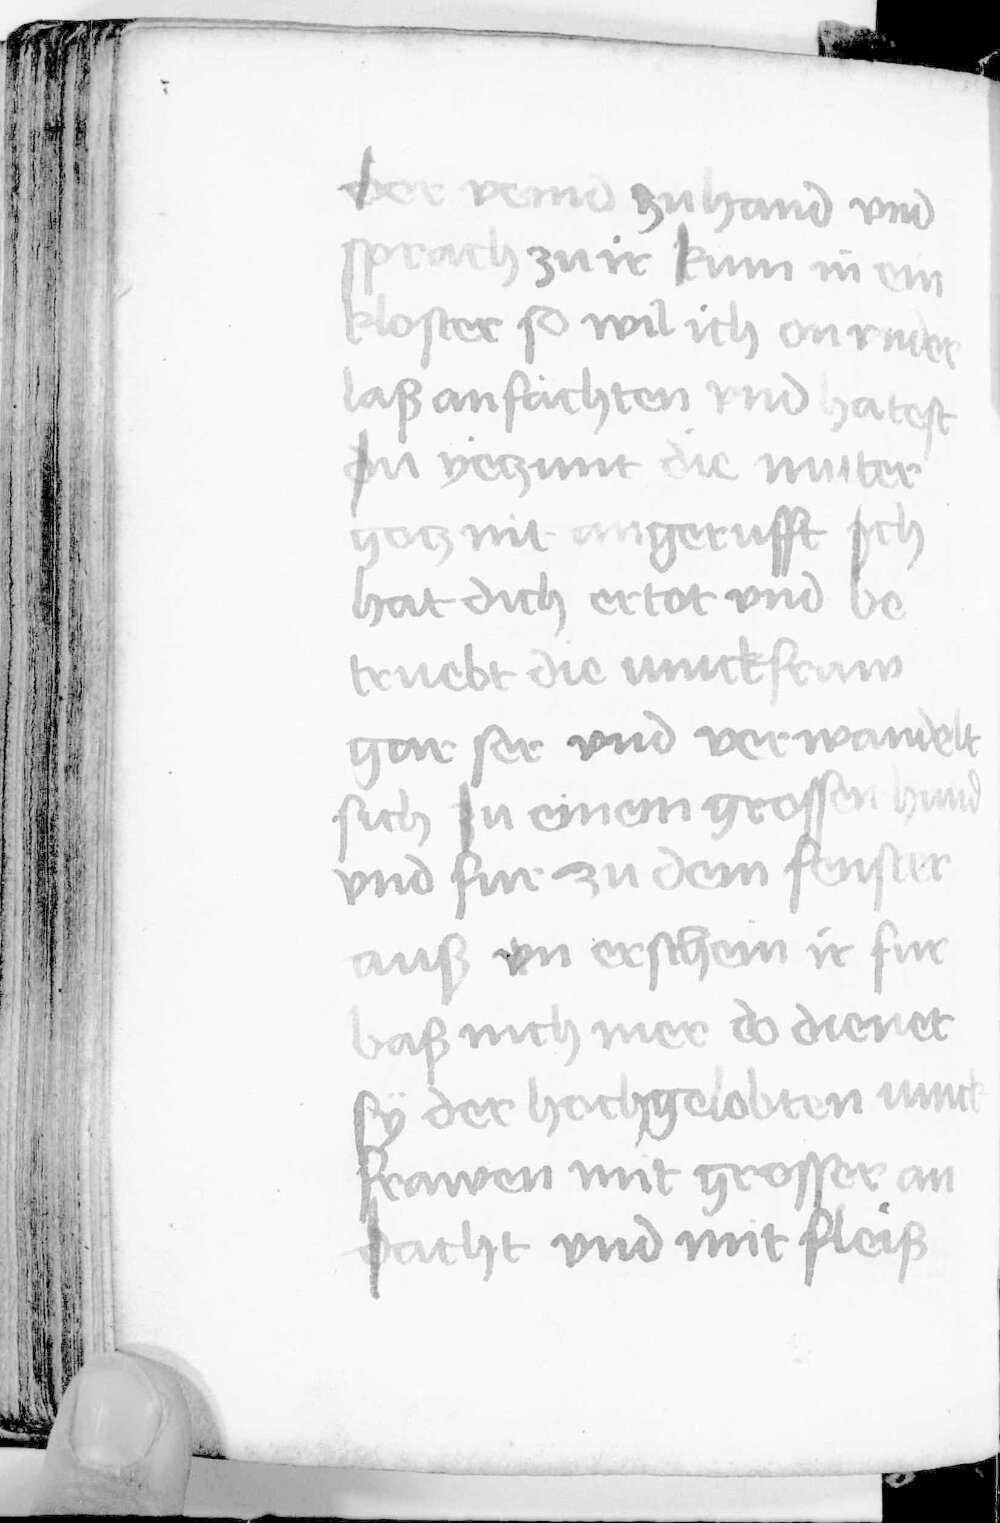 der veind zu hand vnd
sprach zu ir kum in ein
kloster so wil ich on vnder
laß anfächten vnd hatest
du yeczunt die muter
gocz nit angerufft ich
hat dich ertot vnd be
truebt die iunckfraw
gar ser vnd verwandelt
sich In einem grossen hund
vnd fur zu dem fenster
auß vn erschein ir fur
baß nich mer do dienet
sÿ der hochgelobten iunck
frawen mit grosser an
dacht vnd mit fleiß